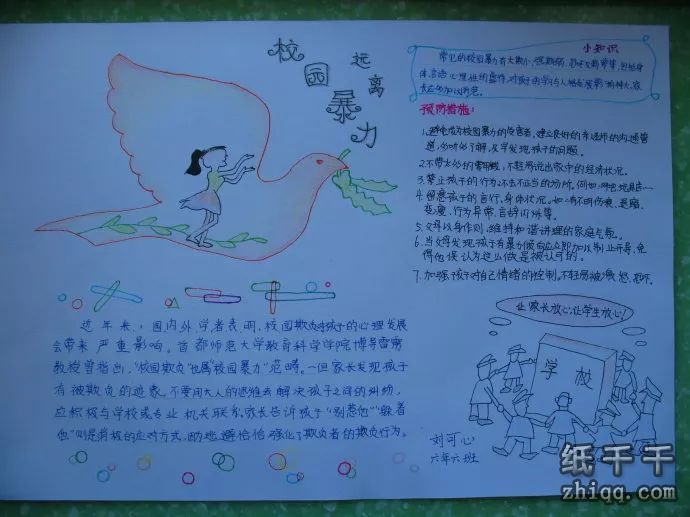 远离
校园暴力
小知识
常见的校园暴力有大欺小、强欺弱、
体、言语、心理、性的
预防措施:
1.避免成为校园暴力的受害者,建立良好的亲师生的沟通管
道,多听多了解,及早发现孩子的问题。
2.不带太多的零用钱,不轻易说出家中的经济状况。
3.禁止孩子的行为:不去不正当的场所,例如:
4.留意孩子的言行,身体状况。如:有不明伤痕、退缩、
行为异常、言语闪烁等。
5.父母以身作则,维持和谐讲理的家庭气氛。
6.当父母发现孩子有暴力倾向应立即加以制止开导,免
得他误认为这么做是被认可的。
7.加强孩子对自己情绪的控制,不轻易被激怒、
让家长放心,让学生放心!
学校
近年来,国内外学者表明,校园欺负对孩子的心理发展
会带来严重影响。首都师范大学教育科学学院博导雷雳
教授曾指出,“校园欺负”也属“校园暴力”范畴。一但家长发现孩子
有被欺负的迹象,不要用大人的思维去解决孩子之间的纠纷,
应积极与学校或专业机关联系,家长告诉孩子“别惹他”“躲着
他”则是消极的应对方式,因逃避恰恰强化了欺负者的欺负行为。
刘可心
六年六班
纸千千
zhiqq.com